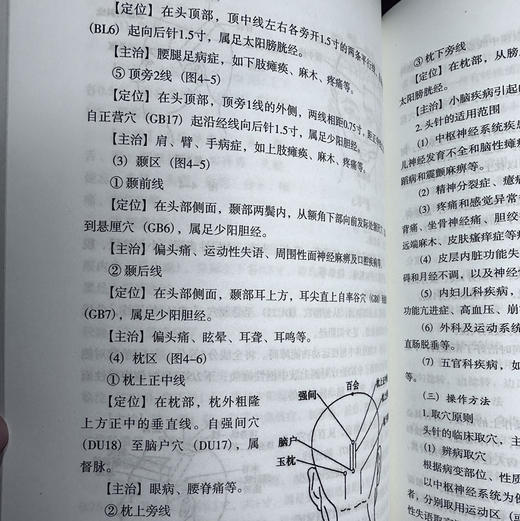 【定位】在头顶部，顶中线左右各旁开1.5寸的两条平行线
（BL6）起向后针1.5寸，属足太阳膀胱经。
【主治】腰腿足病症，如下肢瘫痪、麻木、疼痛等。
⑤ 顶旁2线（图4-5）
【定位】在头顶部，顶旁1线的外侧，两线相距0.75寸，
自正营穴（GB17）起沿经线向后针1.5寸，属足少阳胆经。
【主治】肩、臂、手病症，如上肢瘫痪、麻木、疼痛等。
（3）颞区（图4-5）
① 颞前线
【定位】在头部侧面，颞部两鬓内，从额角下部向前发际处
到悬厘穴（GB6），属足少阳胆经。
【主治】偏头痛、运动性失语、周围性面神经麻痹及口腔疾病等。
② 颞后线
【定位】在头部侧面，颞部耳上方，耳尖直上自率谷穴
（GB7），属足少阳胆经。
【主治】偏头痛、眩晕、耳聋、耳鸣等。
（4）枕区（图4-6）
① 枕上正中线
【定位】在枕部，枕外粗隆
上方正中的垂直线。自强间穴
（DU18）至脑户穴（DU17），属
督脉。
【主治】眼病、腰脊痛等。
② 枕上旁线
百会
强间
脑户
玉枕
③ 枕下旁线
【定位】在枕部，从
太阳膀胱经。
【主治】小脑疾病引起
2. 头针的适用范围
（1）中枢神经系统疾
儿神经发育不全和脑性瘫
蹈病和震颤麻痹等。
（2）精神分裂症、癔
（3）疼痛和感觉异常
背痛、坐骨神经痛、胆绞
远端麻木、皮肤瘙痒症等
（4）皮层内脏功能失
碍和月经不调，以及神经
（5）内妇儿科疾病，
功能亢进症、高血压、崩
（6）外科及运动系统
直肠脱垂等。
（7）五官科疾病，如
（三）操作方法
1. 取穴原则
头针的临床取穴，主
（1）辨病取穴
根据病变部位、性质
以中枢神经系统为
者，分别取用运动区（
性失语取